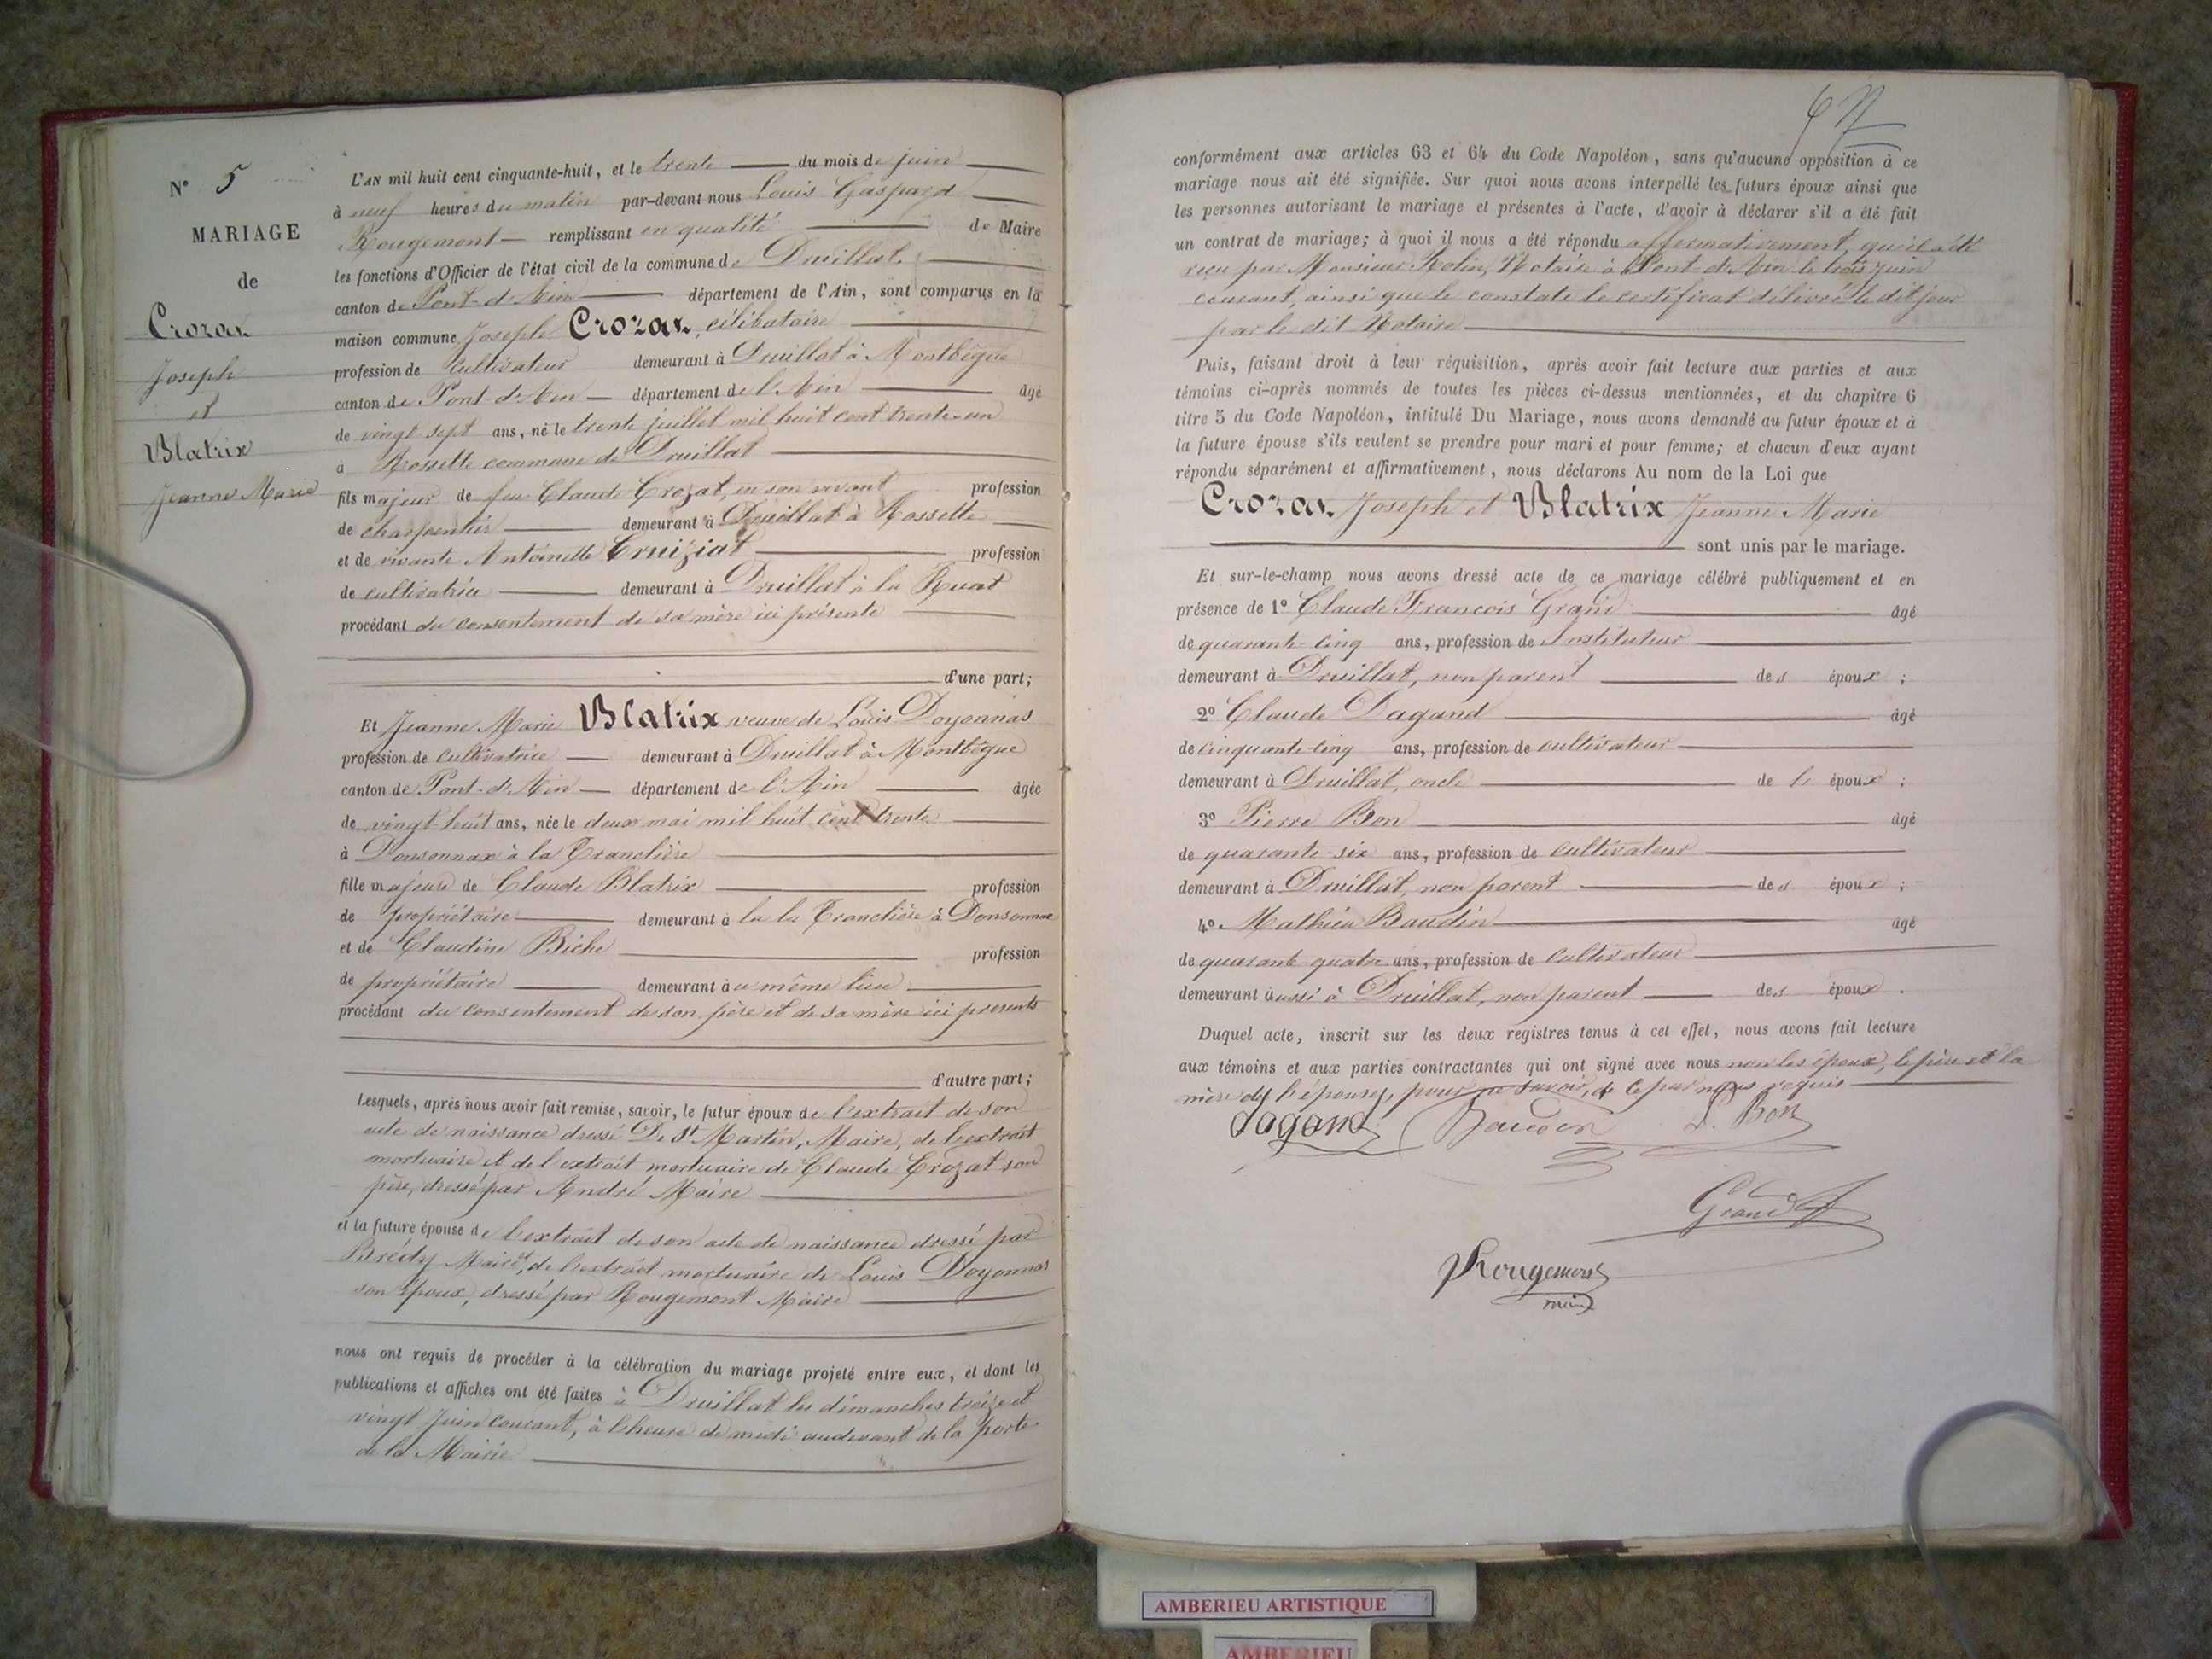 N° 5
MARIAGE
de
Crozat
Joseph
et
Blatrix
Jeanne Marie
L'AN mil huit cent cinquante-huit, et le trente du mois de juin
à neuf heures du matin par-devant nous Louis Gaspard
Rougemont remplissant en qualité de Maire
les fonctions d'Officier de l'état civil de la commune de Druillat
canton de Pont-d'Ain département de l'Ain, sont comparus en la
maison commune Joseph Crozat, célibataire
profession de cultivateur demeurant à Druillat à Montbègue
canton de Pont d'Ain département de l'Ain âgé
de vingt sept ans, né le trente juillet mil huit cent trente-un
à Rossette commune de Druillat
fils majeur de feu Claude Crozat, en son vivant profession
de charpentier demeurant à Druillat à Rossette
et de vivante Antoinette Cruiziat profession
de cultivatrice demeurant à Druillat à la Ruat
procédant du consentement de sa mère ici présente
d'une part;
Et Jeanne Marie Blatrix veuve de Louis Doyonnas
profession de cultivatrice demeurant à Druillat à Montbègue
canton de Pont-d'Ain département de l'Ain âgée
de vingt huit ans, née le deux mai mil huit cent trente
à Donsonnax à la Tranclière
fille majeure de Claude Blatrix profession
de propriétaire demeurant à la la Tranclière à Donsonnax
et de Claudine Biche profession
de propriétaire demeurant au même lieu
procédant du consentement de son père et de sa mère ici présents
d'autre part;
Lesquels, après nous avoir fait remise, savoir, le futur époux de l'extrait de son
acte de naissance dressé De St Martin, Maire, de l'extrait
mortuaire et de l'extrait mortuaire de Claude Crozat son
père, dressé par André Maire
et la future épouse de l'extrait de son acte de naissance dressé par
Brédy Maire, de l'extrait mortuaire de Louis Doyonnas
son époux, dressé par Rougemont Maire
nous ont requis de procéder à la célébration du mariage projeté entre eux, et dont les
publications et affiches ont été faites à Druillat les dimanches treize et
vingt Juin courant, à l'heure de midi audevant de la porte
de la Mairie
conformément aux articles 63 et 64 du Code Napoléon, sans qu'aucune opposition à ce
mariage nous ait été signifiée. Sur quoi nous avons interpellé les futurs époux ainsi que
les personnes autorisant le mariage et présentes à l'acte, d'avoir à déclarer s'il a été fait
un contrat de mariage; à quoi il nous a été répondu affirmativement, qu'il a été
reçu par Monsieur Notaire à Pont-d'Ain le trois juin
courant, ainsi que le constate le certificat délivré le dit jour
par le dit Notaire
Puis, faisant droit à leur réquisition, après avoir fait lecture aux parties et aux
témoins ci-après nommés de toutes les pièces ci-dessus mentionnées, et du chapitre 6
titre 5 du Code Napoléon, intitulé Du Mariage, nous avons demandé au futur époux et à
la future épouse s'ils veulent se prendre pour mari et pour femme; et chacun d'eux ayant
répondu séparément et affirmativement, nous déclarons Au nom de la Loi que
Crozat Joseph et Blatrix Jeanne Marie
sont unis par le mariage.
Et sur-le-champ nous avons dressé acte de ce mariage célébré publiquement et en
présence de 1° Claude François Grand âgé
de quarante-cinq ans, profession de Instituteur
demeurant à Druillat, non parent des époux ;
2° Claude Dagand âgé
de cinquante-cinq ans, profession de cultivateur
demeurant à Druillat, oncle de l' époux ;
3° Pierre Bon âgé
de quarante-six ans, profession de cultivateur
demeurant à Druillat, non parent des époux ;
4° Mathieu Baudin âgé
de quarante-quatre ans, profession de cultivateur
demeurant aussi à Druillat, non parent des époux .
Duquel acte, inscrit sur les deux registres tenus à cet effet, nous avons fait lecture
aux témoins et aux parties contractantes qui ont signé avec nous non les époux, le père et la
mère de l'épouse, pour ne savoir, de ce par nous requis
dagand Baudin P. Bon
Grand
Rougemont
maire
AMBERIEU ARTISTIQUE
AMBERIEU